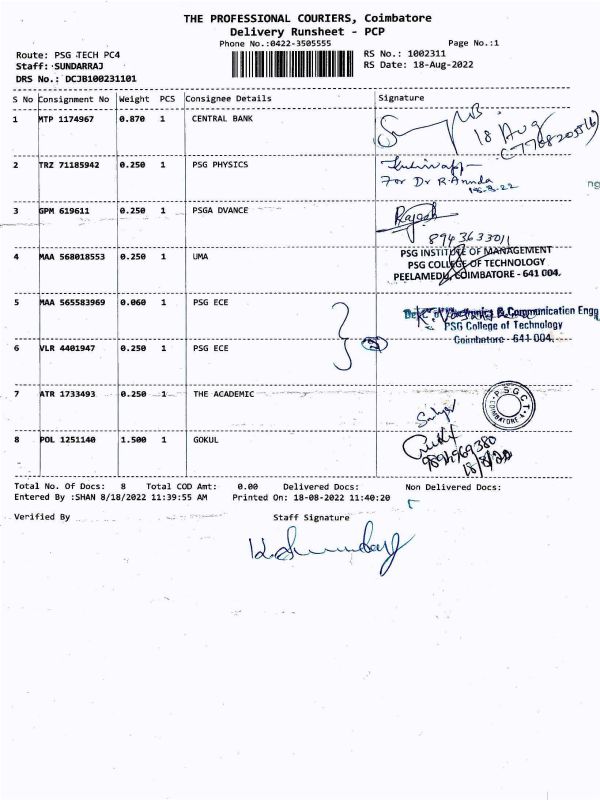 THE PROFESSIONAL COURIERS, Coimbatore
Delivery Runsheet - PCP
Phone No.:0422-3505555 Page No.:1
Route: PSG TECH PC4 RS No.: 1002311
Staff: SUNDARRAJ RS Date: 18-Aug-2022
DRS No.: DCJB100231101
S No Consignment No Weight PCS Consignee Details Signature
1 MTP 1174967 0.870 1 CENTRAL BANK
18 Aug
2 TRZ 71185942 0.250 1 PSG PHYSICS
For Dr R. Amnda
18.8.22
3 GPM 619611 0.250 1 PSGA DVANCE Rajesh
8943633011
4 MAA 568018553 0.250 1 UMA PSG INSTITUTE OF MANAGEMENT
PSG COLLEGE OF TECHNOLOGY
PEELAMEDU, COIMBATORE - 641 004.
5 MAA 565583969 0.060 1 PSG ECE Dept. of Electronics & Communication Engg
PSG College of Technology
Coimbatore - 641 004.
6 VLR 4401947 0.250 1 PSG ECE 2
7 ATR 1733493 0.250 1 THE ACADEMIC
P.S.G.C.T.
COIMBATORE 4
8 POL 1251140 1.500 1 GOKUL
9894969380
18/8/22
Total No. Of Docs: 8 Total COD Amt: 0.00 Delivered Docs: Non Delivered Docs:
Entered By :SHAN 8/18/2022 11:39:55 AM Printed On: 18-08-2022 11:40:20
Verified By Staff Signature